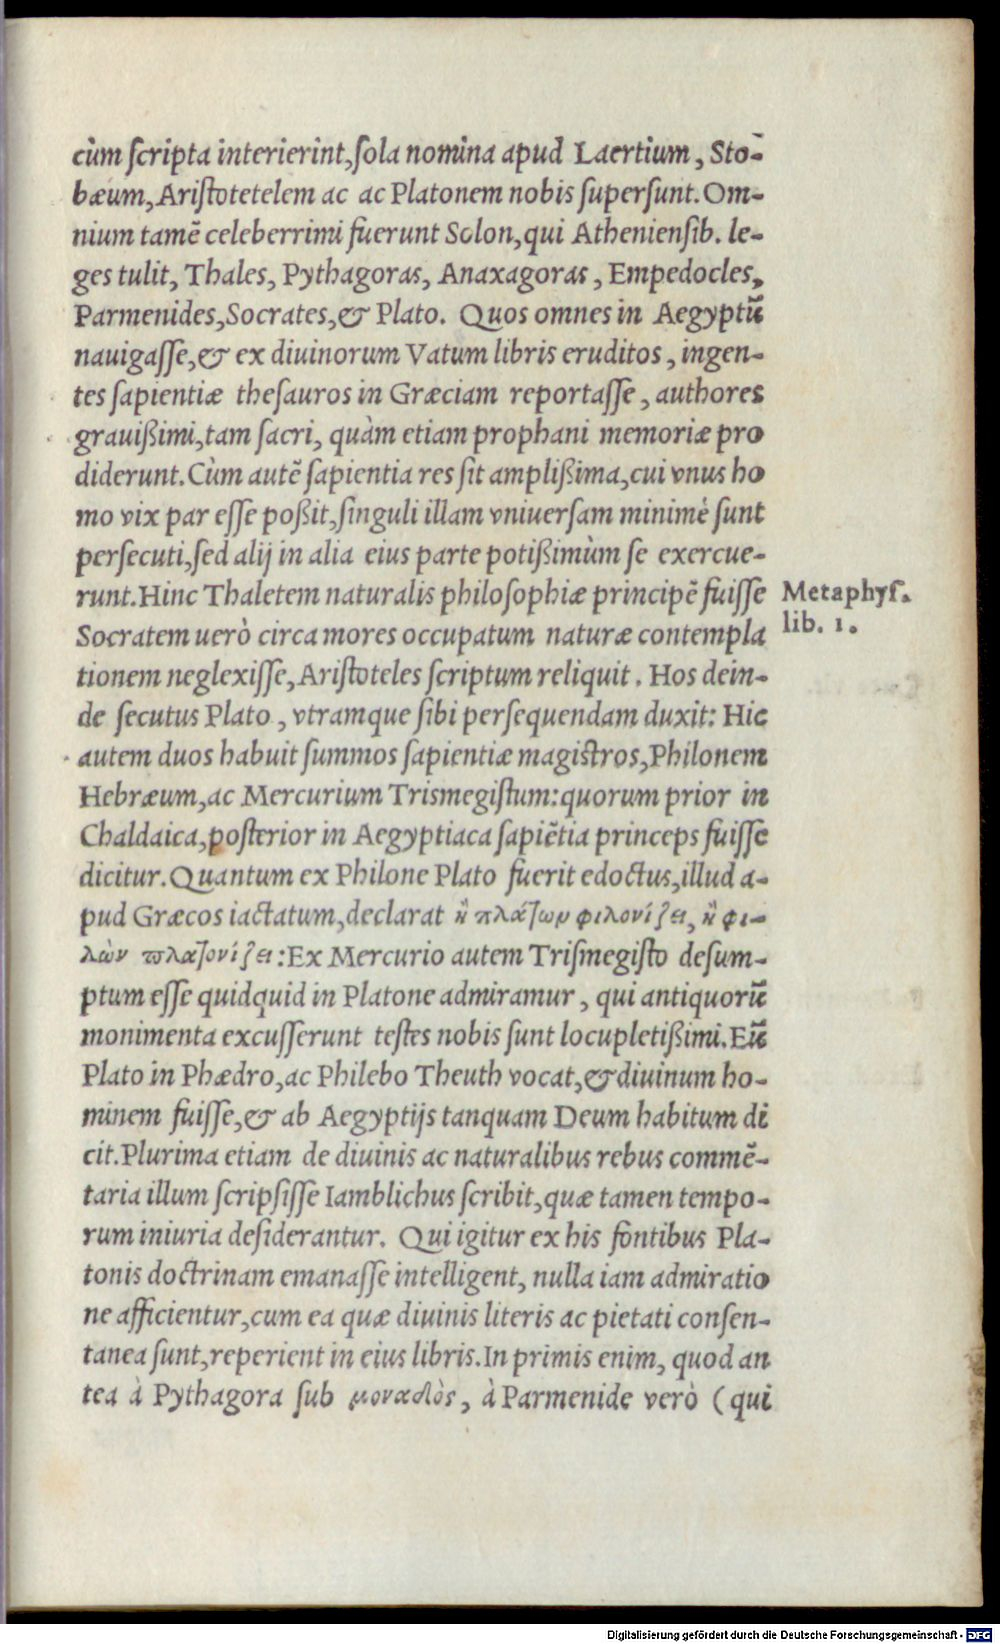 cùm scripta interierint, sola nomina apud Laertium, Sto-
bæum, Aristotetelem ac ac Platonem nobis supersunt. Om-
nium tamẽ celeberrimi fuerunt Solon, qui Atheniensib. le-
ges tulit, Thales, Pythagoras, Anaxagoras, Empedocles,
Parmenides, Socrates, & Plato. Quos omnes in Aegyptũ
nauigasse, & ex diuinorum Vatum libris eruditos, ingen-
tes sapientiæ thesauros in Græciam reportasse, authores
grauißimi, tam sacri, quàm etiam prophani memoriæ pro
diderunt. Cùm autẽ sapientia res sit amplißima, cui vnus ho
mo vix par esse poßit, singuli illam vniuersam minimè sunt
persecuti, sed alij in alia eius parte potißimùm se exercue-
runt. Hinc Thaletem naturalis philosophiæ principẽ fuisse
Metaphys.
lib. 1.
Socratem uerò circa mores occupatum naturæ contempla
tionem neglexisse, Aristoteles scriptum reliquit. Hos dein-
de secutus Plato, vtramque sibi persequendam duxit: Hic
autem duos habuit summos sapientiæ magistros, Philonem
Hebræum, ac Mercurium Trismegistum: quorum prior in
Chaldaica, posterior in Aegyptiaca sapiẽtia princeps fuisse
dicitur. Quantum ex Philone Plato fuerit edoctus, illud a-
pud Græcos iactatum, declarat ἢ πλάτων φιλονίζει, ἢ φι-
λὼν πλατονίζει: Ex Mercurio autem Trismegisto desum-
ptum esse quidquid in Platone admiramur, qui antiquorũ
monimenta excusserunt testes nobis sunt locupletißimi. Eũ
Plato in Phædro, ac Philebo Theuth vocat, & diuinum ho-
minem fuisse, & ab Aegyptijs tanquam Deum habitum di
cit. Plurima etiam de diuinis ac naturalibus rebus commẽ-
taria illum scripsisse Iamblichus scribit, quæ tamen tempo-
rum iniuria desiderantur. Qui igitur ex his fontibus Pla-
tonis doctrinam emanasse intelligent, nulla iam admiratio
ne afficientur, cum ea quæ diuinis literis ac pietati consen-
tanea sunt, reperient in eius libris. In primis enim, quod an
tea à Pythagora sub μοναδὸς, à Parmenide verò (qui
Digitalisierung gefördert durch die Deutsche Forschungsgemeinschaft - DFG